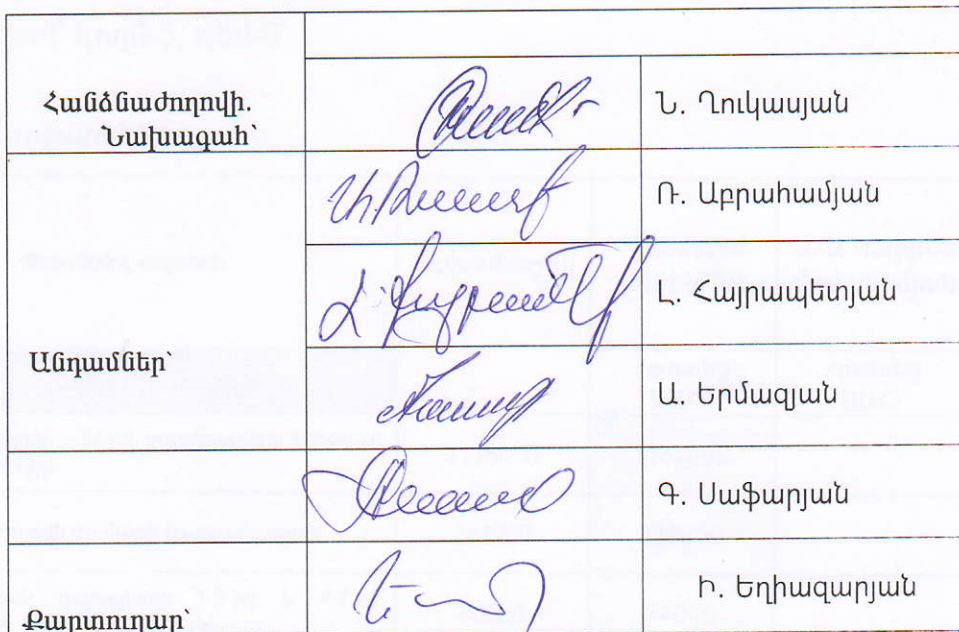 Հանձնաժողովի.
Նախագահ՝
Ն. Ղուկասյան
Ռ. Աբրահամյան
Լ. Հայրապետյան
Անդամներ՝
Ա. Երմազյան
Գ. Սաֆարյան
Քարտուղար՝
Ի. Եղիազարյան